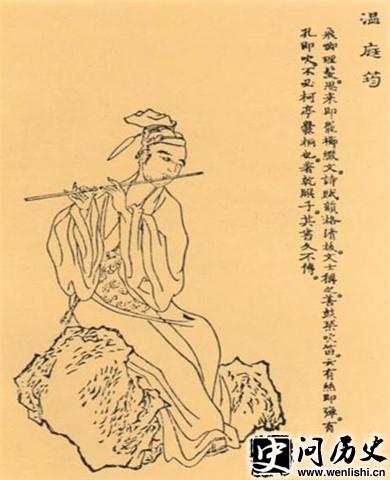 温庭筠
飛卿理髮思来即罷櫛綴文詩賦韻格清拔文士稱之善鼓琴吹笛云有絲即彈有
孔即吹不必柯亭爨桐也著乾𦠆子其書久不傳
史问历史
www.wenlishi.cn